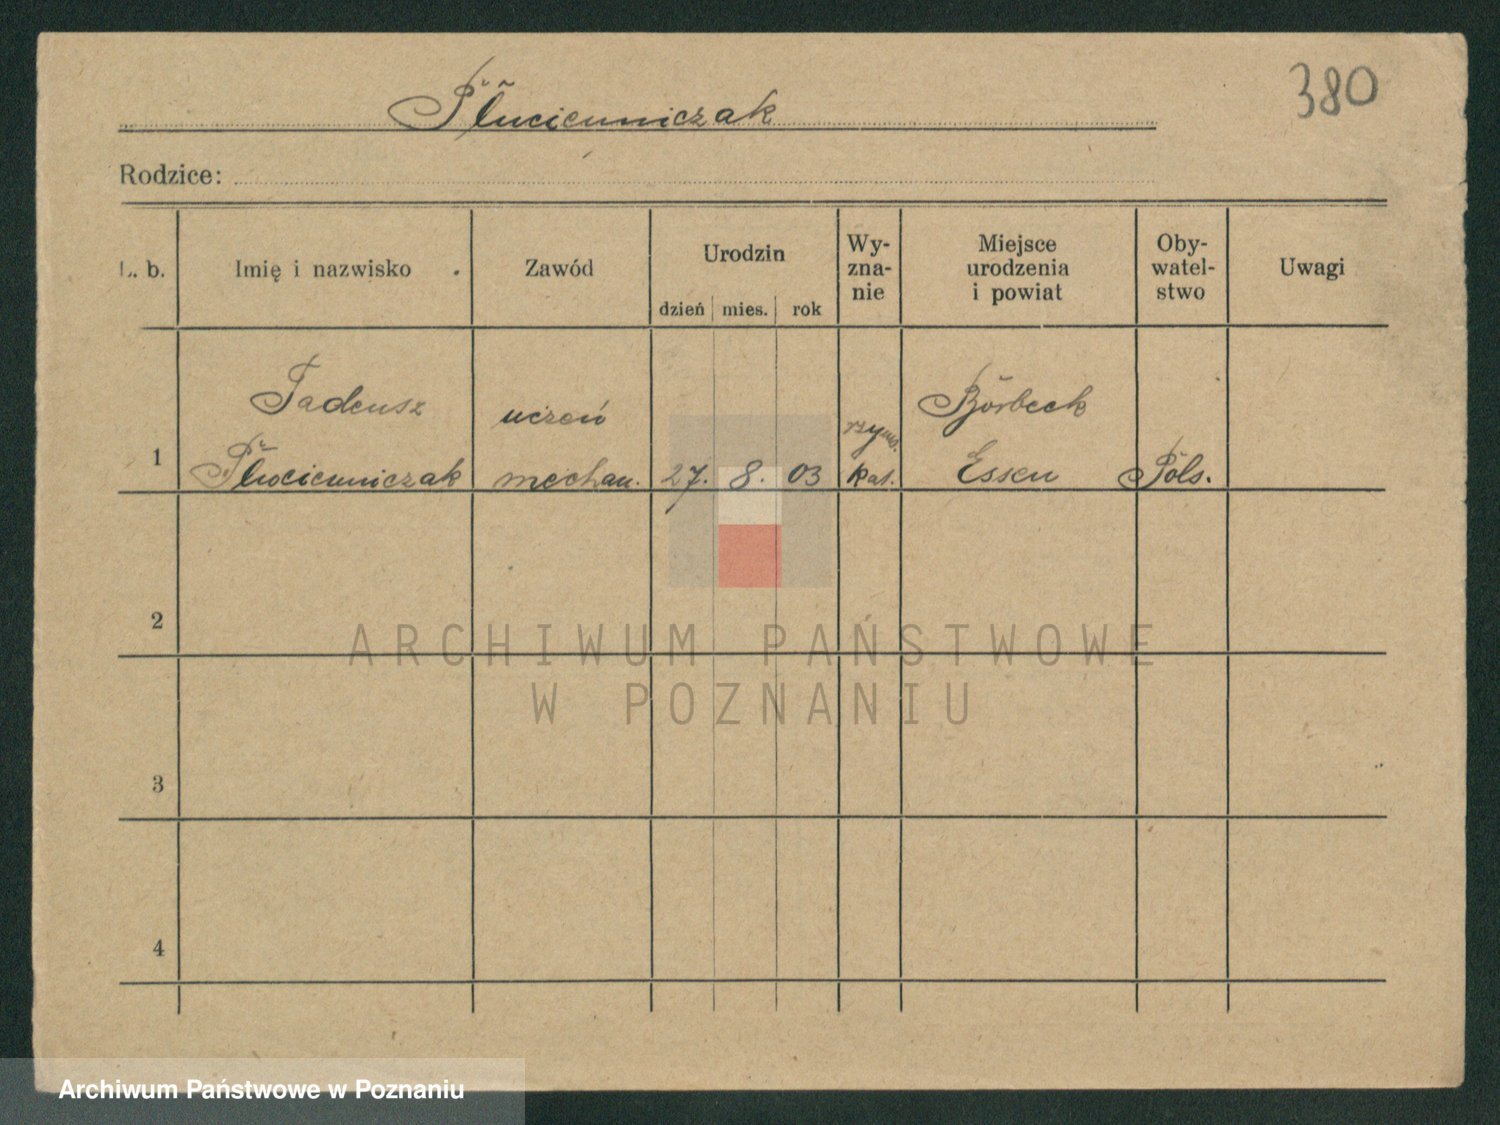 380
Płucienniczak
Rodzice:
L. b.
Imię i nazwisko
Zawód
Urodzin
dzień mies. rok
Wy-
zna-
nie
Miejsce
urodzenia
i powiat
Oby-
watel-
stwo
Uwagi
1
Tadeusz
Płócienniczak
uczeń
mechan.
27. 8. 03
rzym.
kat.
Börbeck
Essen
Pols.
2
3
4
ARCHIWUM PAŃSTWOWE
W POZNANIU
Archiwum Państwowe w Poznaniu